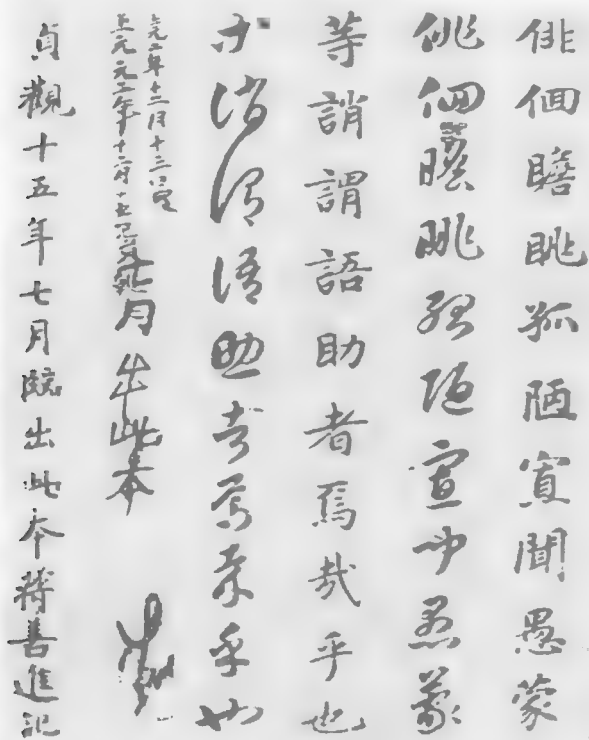 俳佪瞻眺孤陋寡聞愚蒙
俳佪瞻眺孤陋寡聞愚蒙
等誚謂語助者焉哉乎也
等誚謂語助者焉哉乎也
月出此本
貞觀十五年七月臨出此本蔣善進記